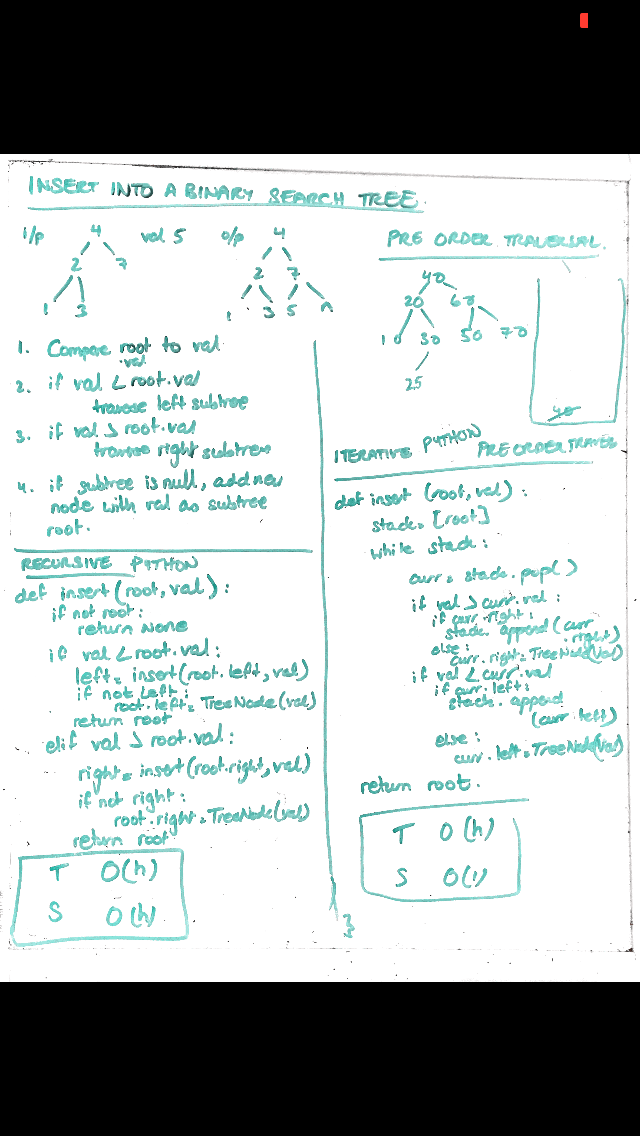 INSERT INTO A BINARY SEARCH TREE.
i/p
4
2 7
1 3
val 5
o/p
4
2 7
1 3 5 n
1. Compare root.val to val
2. if val < root.val
traverse left subtree
3. if val > root.val
traverse right subtree
4. if subtree is null, add new
node with val as subtree
root.
RECURSIVE PYTHON
def insert(root, val):
if not root:
return None
if val < root.val:
left = insert(root.left, val)
if not left:
root.left = TreeNode(val)
return root
elif val > root.val:
right = insert(root.right, val)
if not right:
root.right = TreeNode(val)
return root
T O(h)
S O(h)
PRE ORDER TRAVERSAL.
40
20 60
10 30 50 70
25
40
ITERATIVE PYTHON PREORDER TRAVEL
def insert (root, val):
stack = [root]
while stack:
curr = stack.pop()
if val > curr.val:
if curr.right:
stack.append(curr
.right)
else:
curr.right = TreeNode(val)
if val < curr.val
if curr.left:
stack.append
(curr.left)
else:
curr.left = TreeNode(val)
return root.
T O(h)
S O(1)